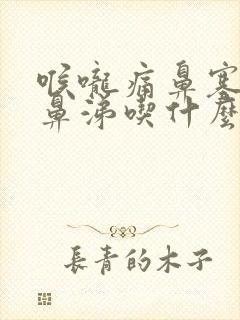 喉嚨痛鼻塞
鼻涕喫什麼
長青的木子